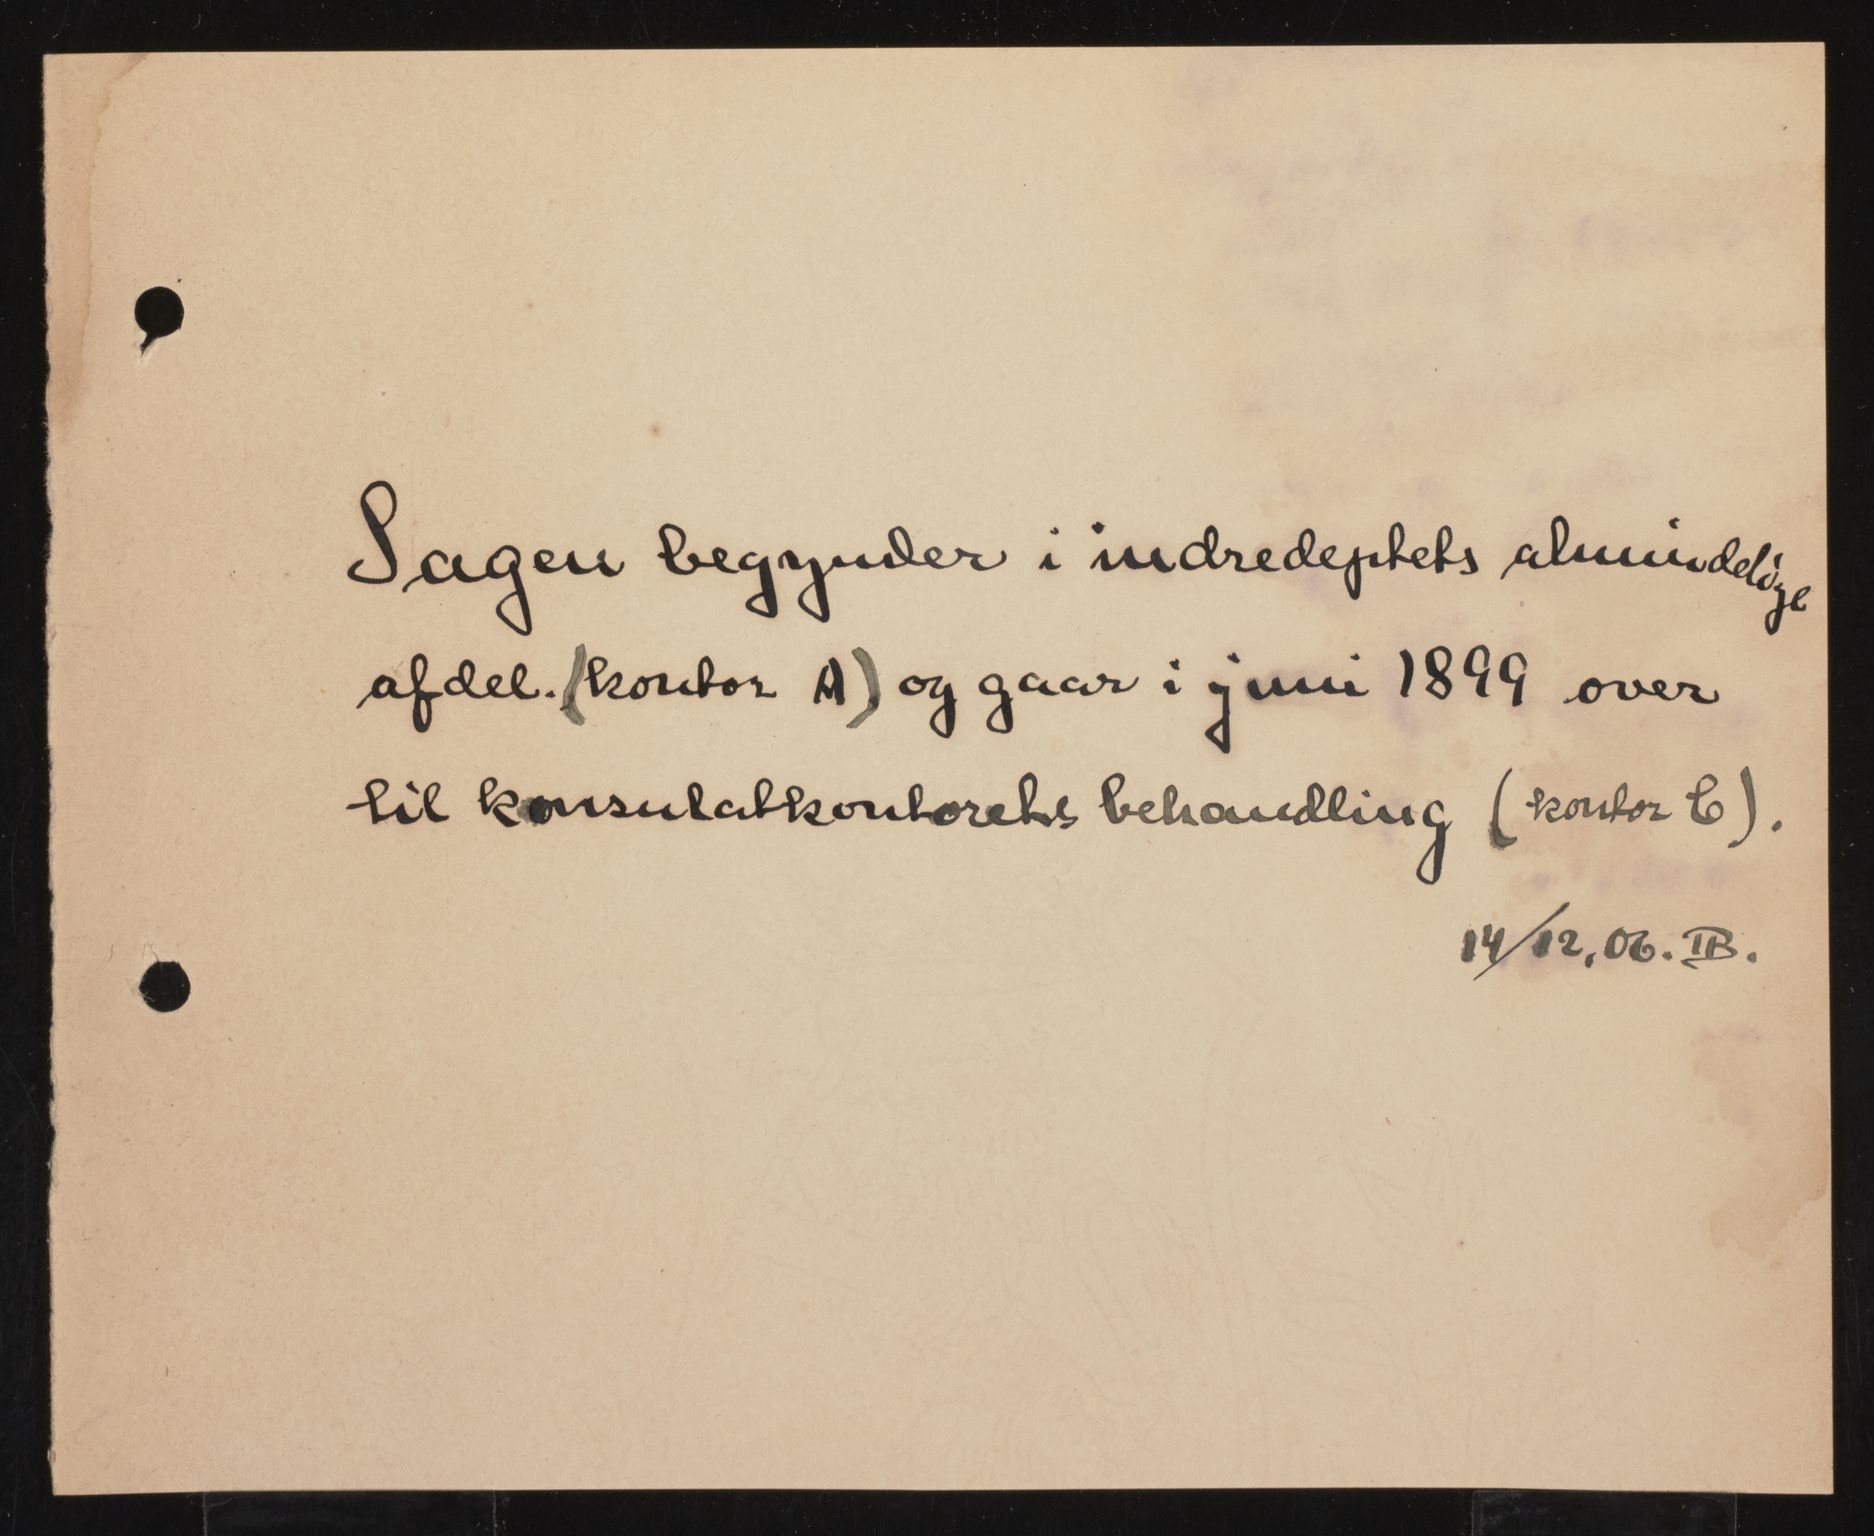 Sagen begynder i indredeptets almindelige
afdel. (kontor A) og gaar i juni 1899 over
til konsulatkontorets behandling (kontor C).
14/12.06. IB.